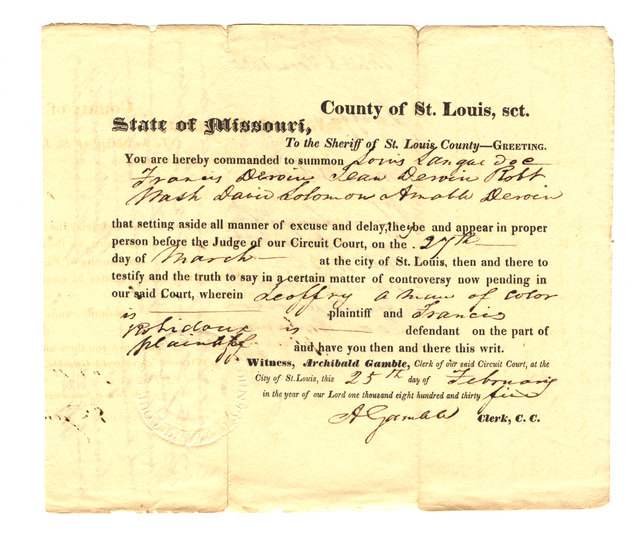 County of St. Louis, sct.
State of Missouri,
To the Sheriff of St. Louis County—GREETING.
You are hereby commanded to summon Louis Langue doc
Francis Deroin Jean Deroin Robt
Wash David Solomon Amable Deroin
that setting aside all manner of excuse and delay, they be and appear in proper
person before the Judge of our Circuit Court, on the 27th
day of March at the city of St. Louis, then and there to
testify and the truth to say in a certain matter of controversy now pending in
our said Court, wherein Geoffry a man of color
is plaintiff and Francis
Robidoux is defendant on the part of
plaintiff and have you then and there this writ.
Witness, Archibald Gamble, Clerk of our said Circuit Court, at the
City of St. Louis, this 25th day of February
in the year of our Lord one thousand eight hundred and thirty five
A Gamble Clerk, C. C.